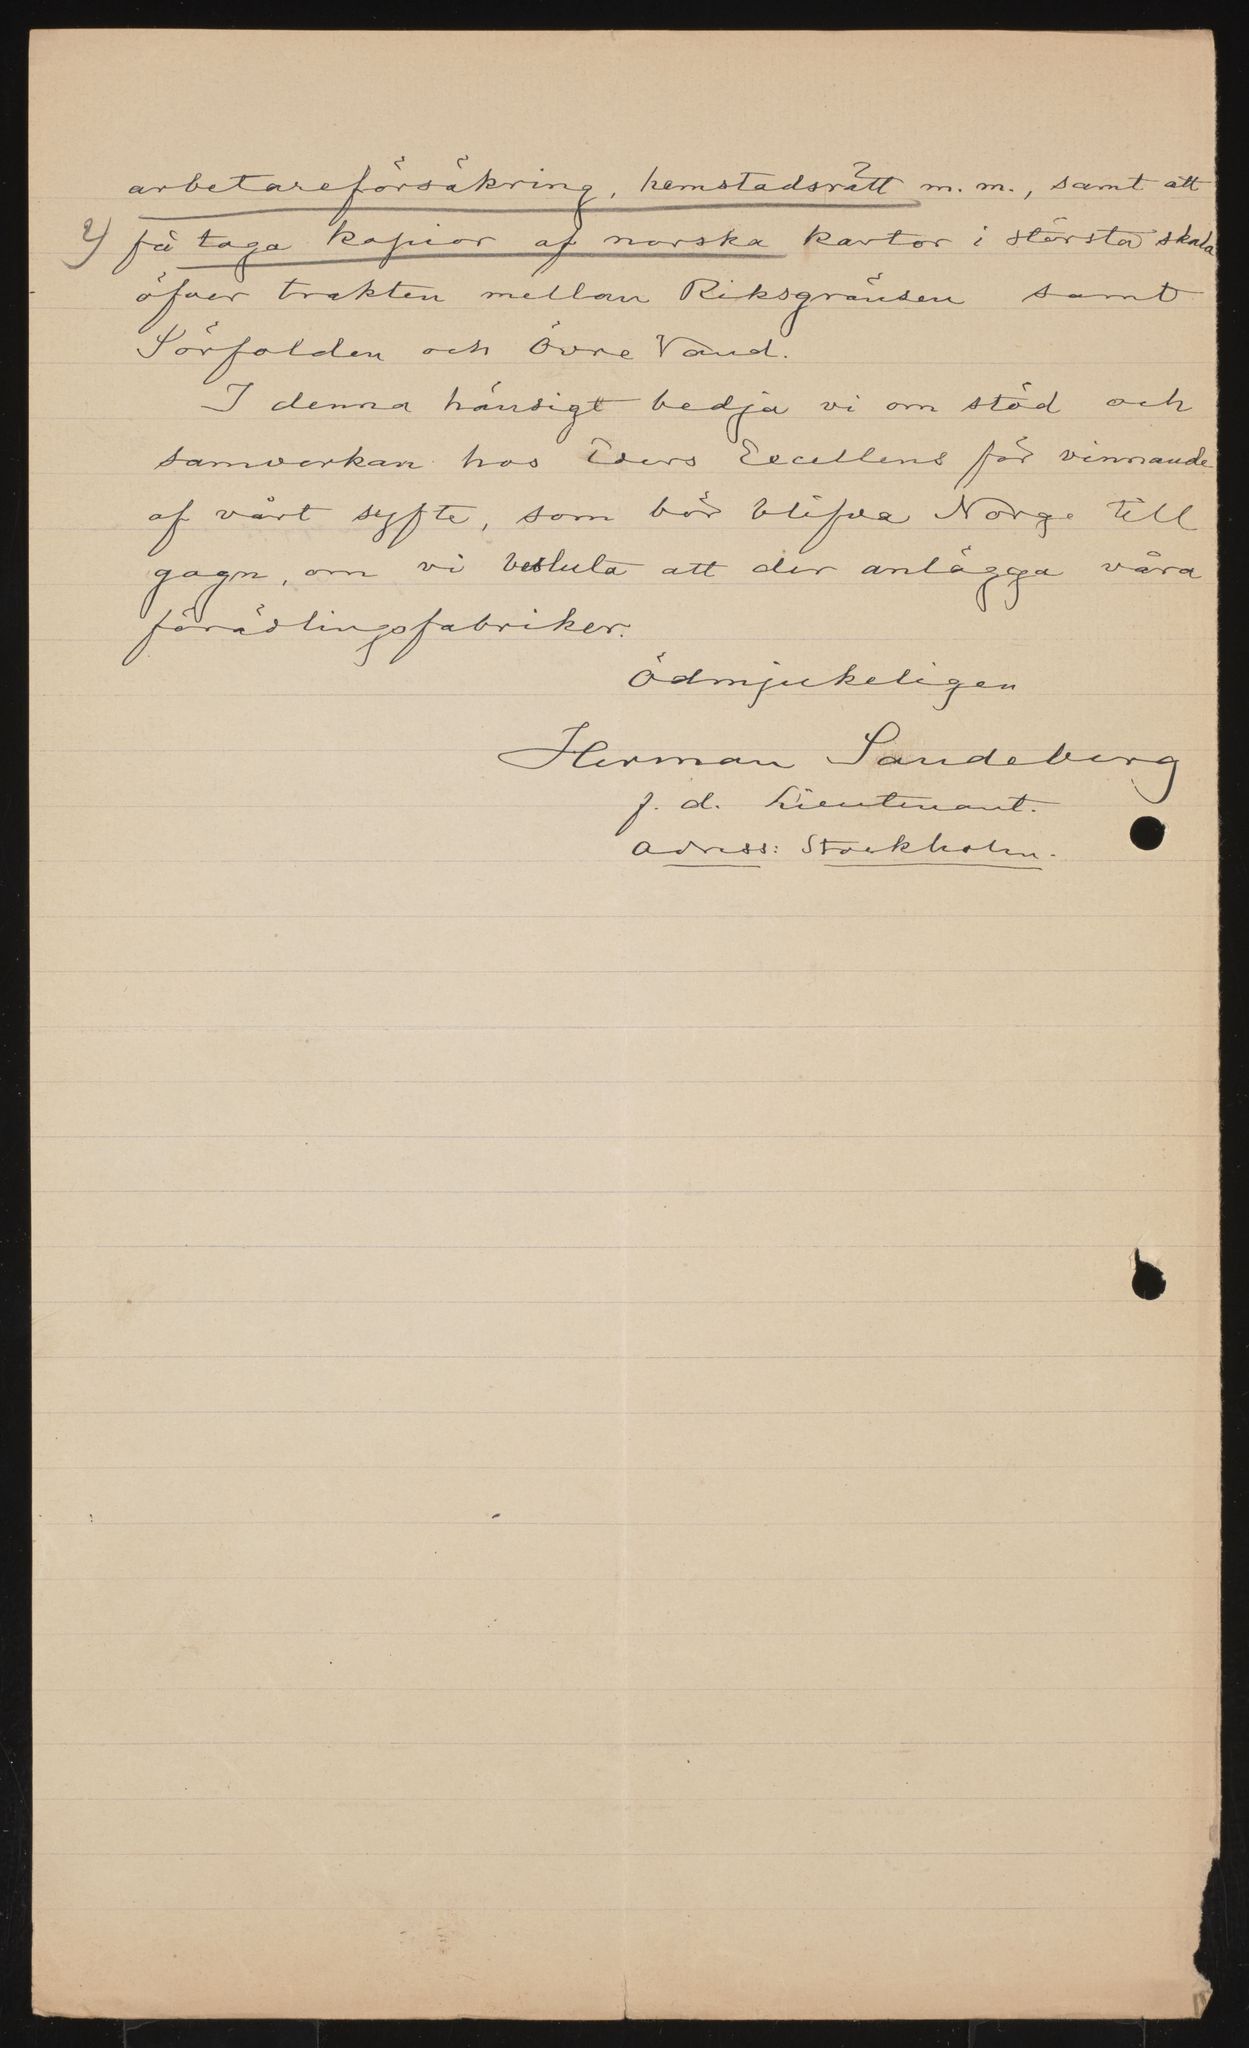 arbetareförsäkring, hemstadsrätt m. m., samt att
2) få taga kopior af norska kartor i största skala
öfver trakten mellan Riksgränsen samt
Sörfolden och Övre Vand.
I denna hänsigt bedja vi om stöd och
samverkan hos Eders Excellens för vinnande
af vårt syfte, som bör blifva Norge till
gagn, om vi besluta att der anlägga våra
förädlingsfabriker.
Ödmjukeligen
Herman Sandeberg
f. d. Lieutenant.
Adress: Stockholm.